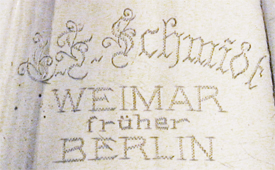 J. F. Schmidt
WEIMAR
früher
BERLIN